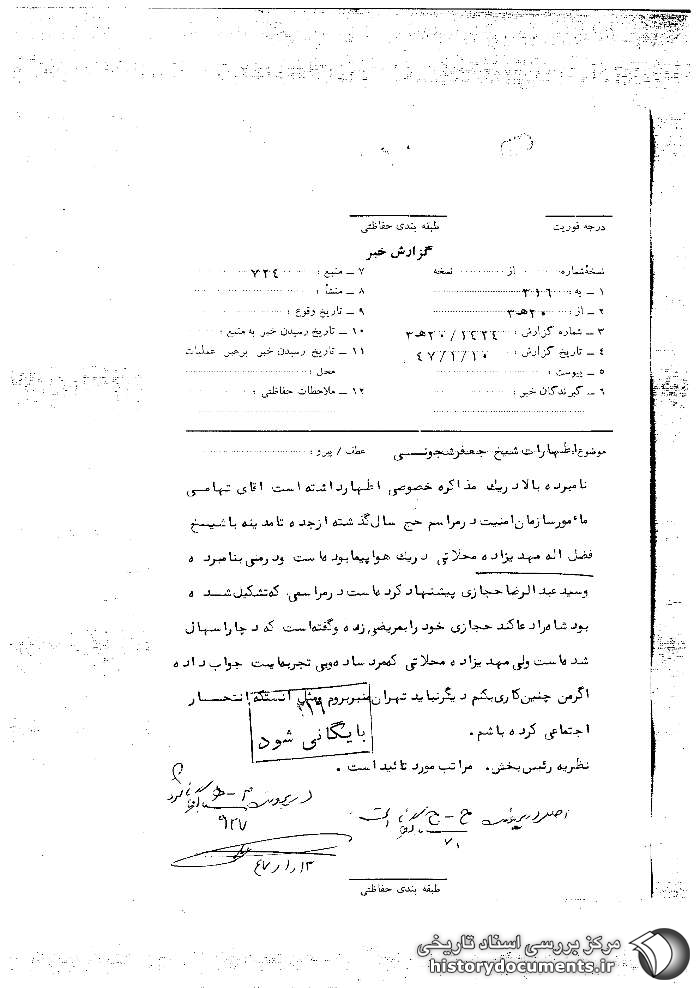 درجه فوریت
طبقه بندی حفاظتی
گزارش خبر
نسخهٔ شماره از نسخه
۱ ــ به : ۳۱۶
۲ ــ از : ۲۰هـ۳
۳ ــ شماره گزارش : ۲۰/۱۴۲۴هـ۳
۴ ــ تاریخ گزارش : ۴۷/۱/۱۰
۵ ــ پیوست :
۶ ــ گیرندگان خبر :
۷ ــ منبع : ۷۲۴
۸ ــ منشأ :
۹ ــ تاریخ وقوع :
۱۰ ــ تاریخ رسیدن خبر به منبع :
۱۱ ــ تاریخ رسیدن خبر برهبر عملیات
محل :
۱۲ ــ ملاحظات حفاظتی :
موضوع اظهارات شیخ جعفر شجونی
عطف / پیرو :
نامبرده بالا در یک مذاکره خصوصی اظهار داشته است آقای تهامی
مأمور سازمان امنیت در مراسم حج سال گذشته از جده تا مدینه با شیخ
فضل اله مهدیزاده محلاتی در یک هواپیما بوده است ودرمنی بنامبرده
وسید عبدالرضا حجازی پیشنهاد کرده است در مراسمی که تشکیل شده
بود شاه را دعا کند حجازی خود را بمریضی زده و گفته است که دچار اسهال
شده است ولی مهدیزاده محلاتی که مرد ساده و بی تجربه ایست جواب داده
اگر من چنین کاری بکنم دیگر نباید تهران منبر بروم و مثل اینستکه انتحار
اجتماعی کرده باشم .
۳۱۶
بایگانی شود
نظریه رئیس بخش . مراتب مورد تائید است .
اصل در پرونده ح – ج بایگانی است
۷۱
در پرونده م – ه بایگانی گردد
۹۲۷
۴۷/۱/۱۳
طبقه بندی حفاظتی
مرکز بررسی اسناد تاریخی
historydocuments.ir